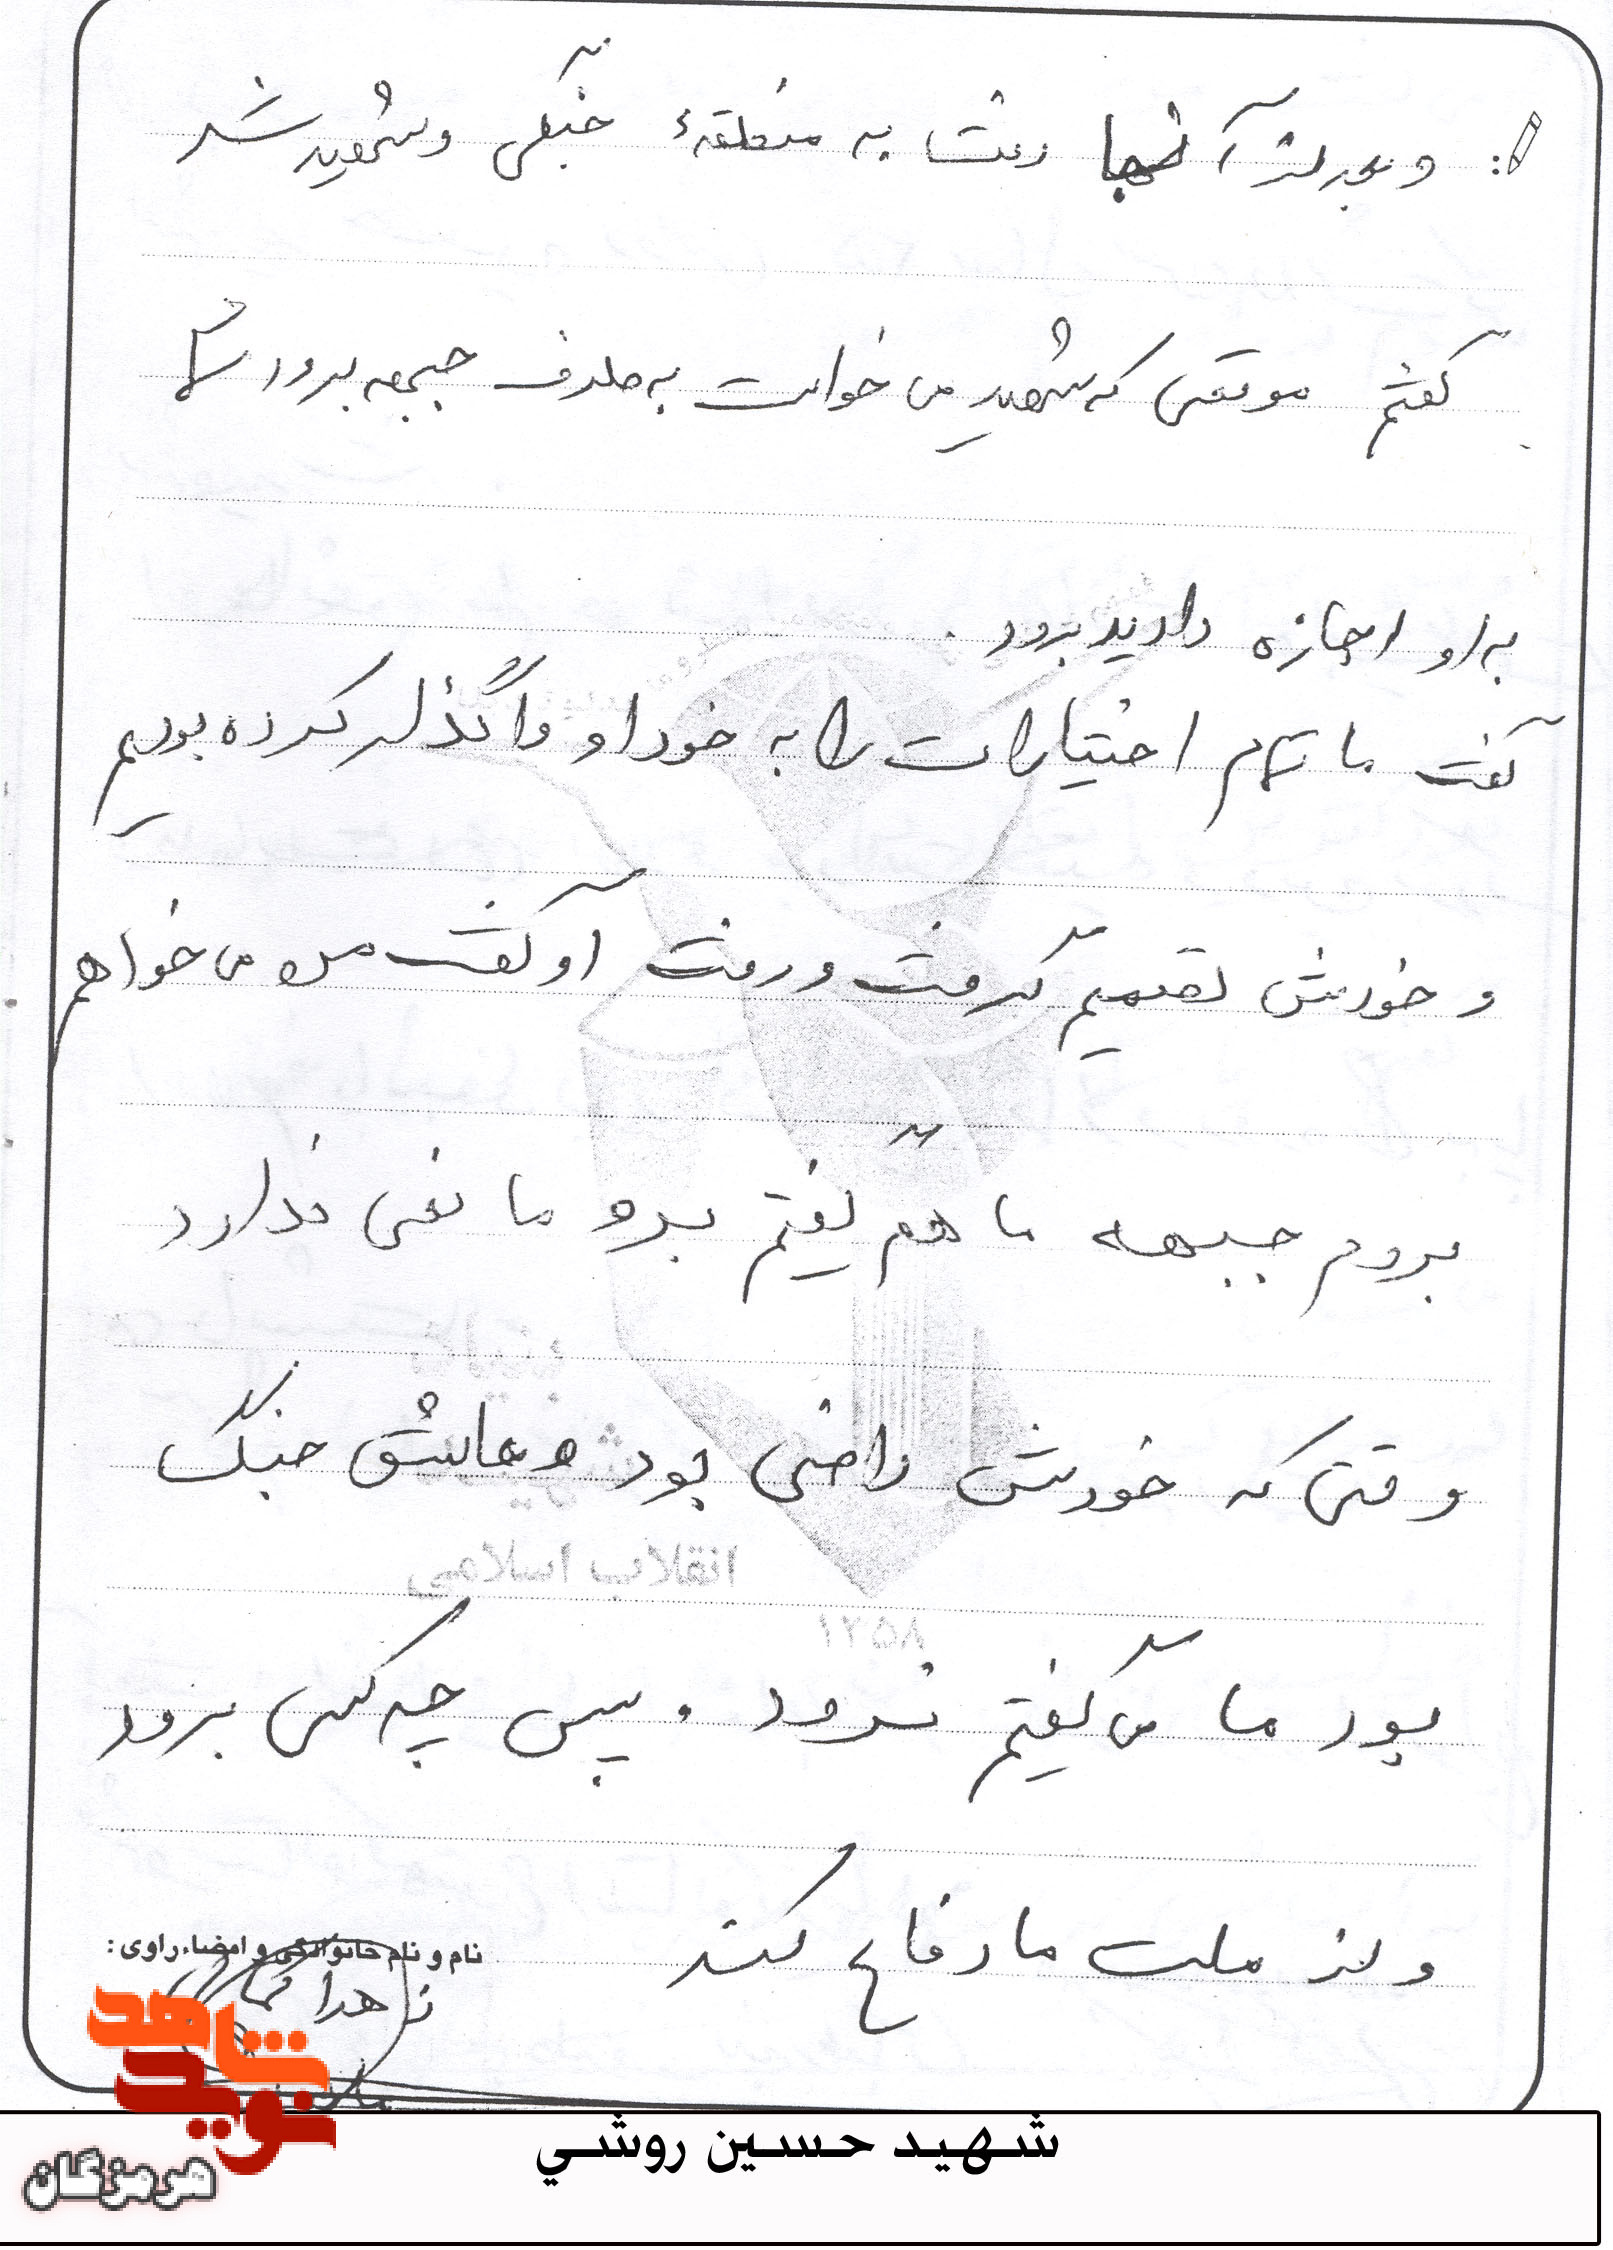 و بعد از آنجا رفت به منطقهٔ جنگی و شهید شد
گفتم موقعی که شهید می خواست به طرف جبهه برود شما
به او اجازه دادید برود.
گفت ما تمام اختیارات را به خود او واگذار کرده بودیم
و خودش تصمیم گرفت و رفت او گفت من می خواهم
بروم جبهه ما هم گفتم برو ما نفی ندارد
وقتی که خودش راضی بود و عاشق جنگ
بود ما می گفتم نرود. پس چه کسی برود
و از ملت ما دفاع کند
نام و نام خانوادگی و امضاء راوی:
شاهد
نوید
هرمزگان
شهید حسین روشي